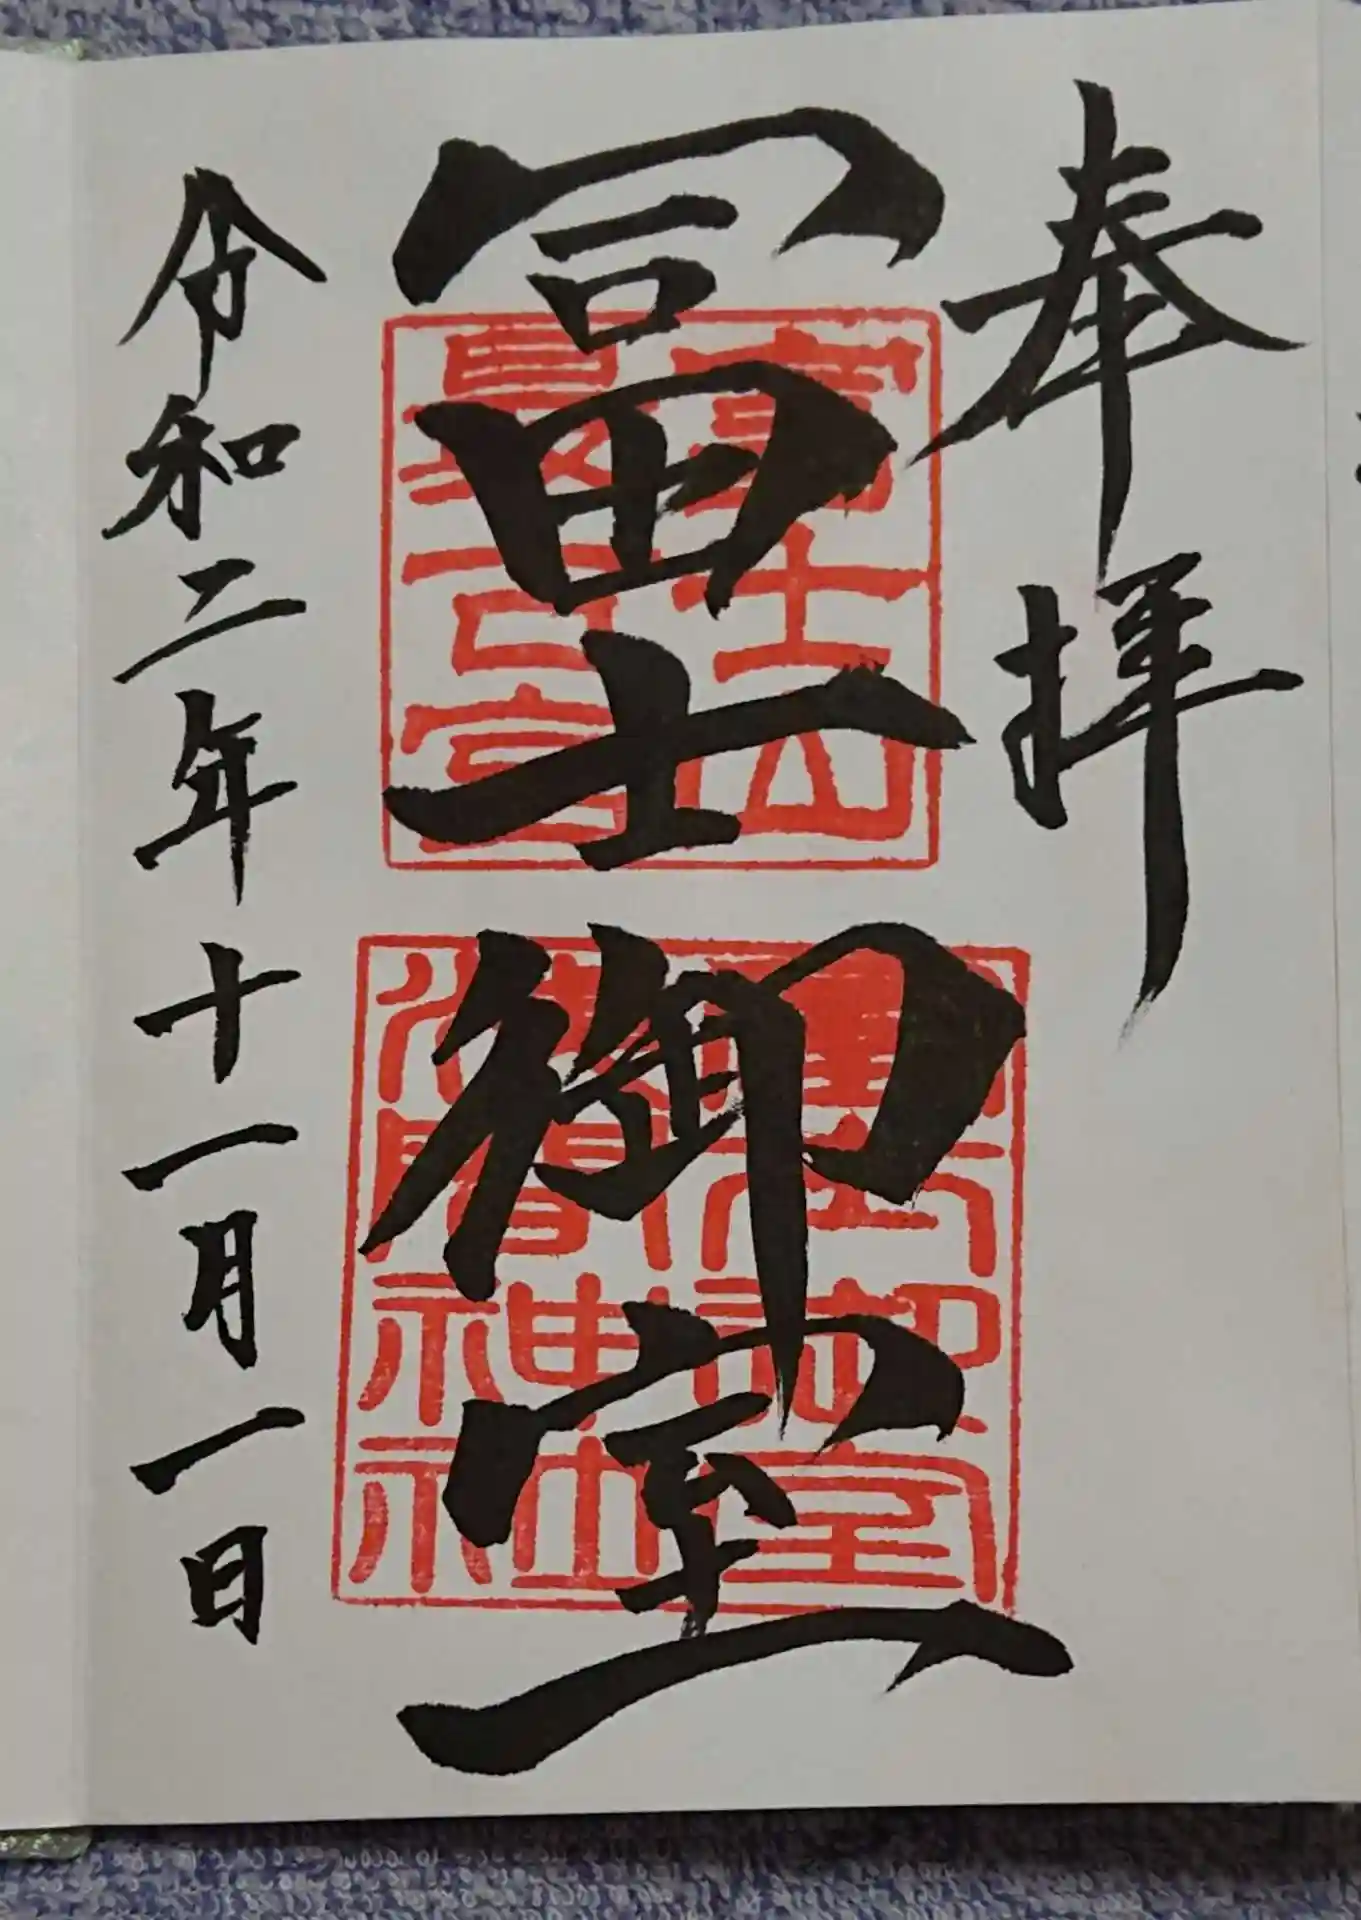 奉拝
冨士御室
富士山
最古宮
冨士御室
浅間神社
令和二年十一月一日